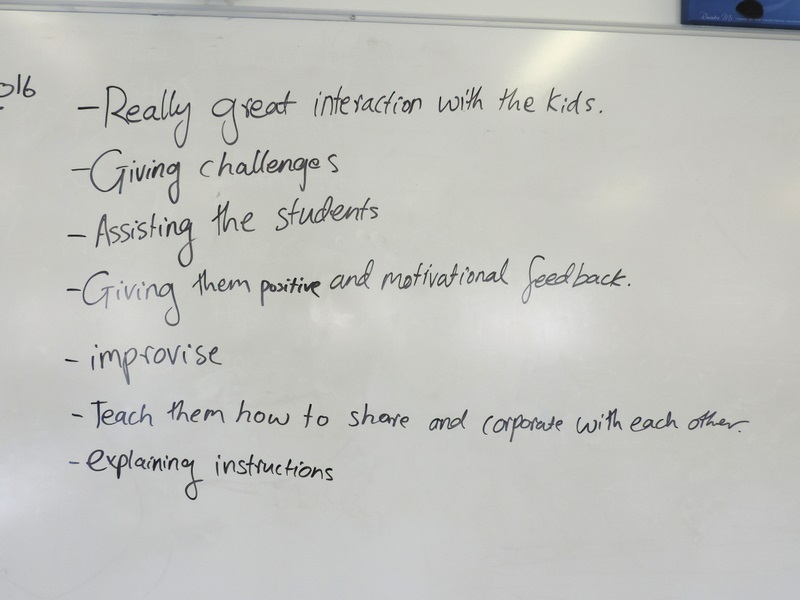 - Really great interaction with the kids.
- Giving challenges
- Assisting the students
- Giving them positive and motivational feedback.
- improvise
- Teach them how to share and corporate with each other.
- explaining instructions